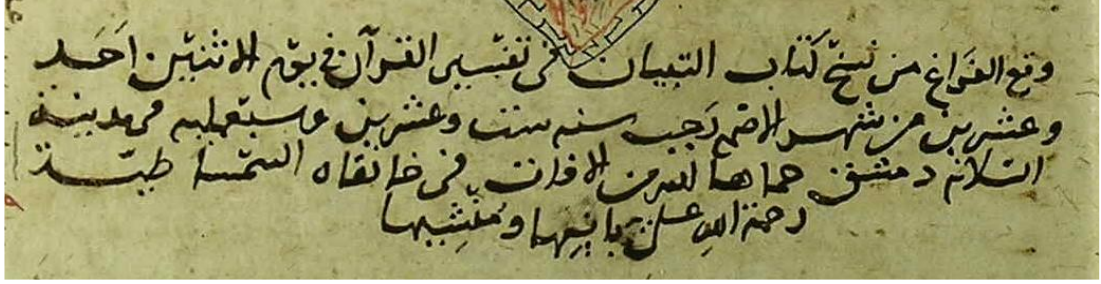 وقع الفراغ من نسخ كتاب التبيان في تفسير القرآن في يوم الاثنين احد
وعشرين من شهر الاصم رجب سنه ست وعشرين وسبعمايه في مدينة
السلام دمشق حماها الله من الافات في خانقاه السميساطيـة
رحمة الله على بانيها ومنشيها